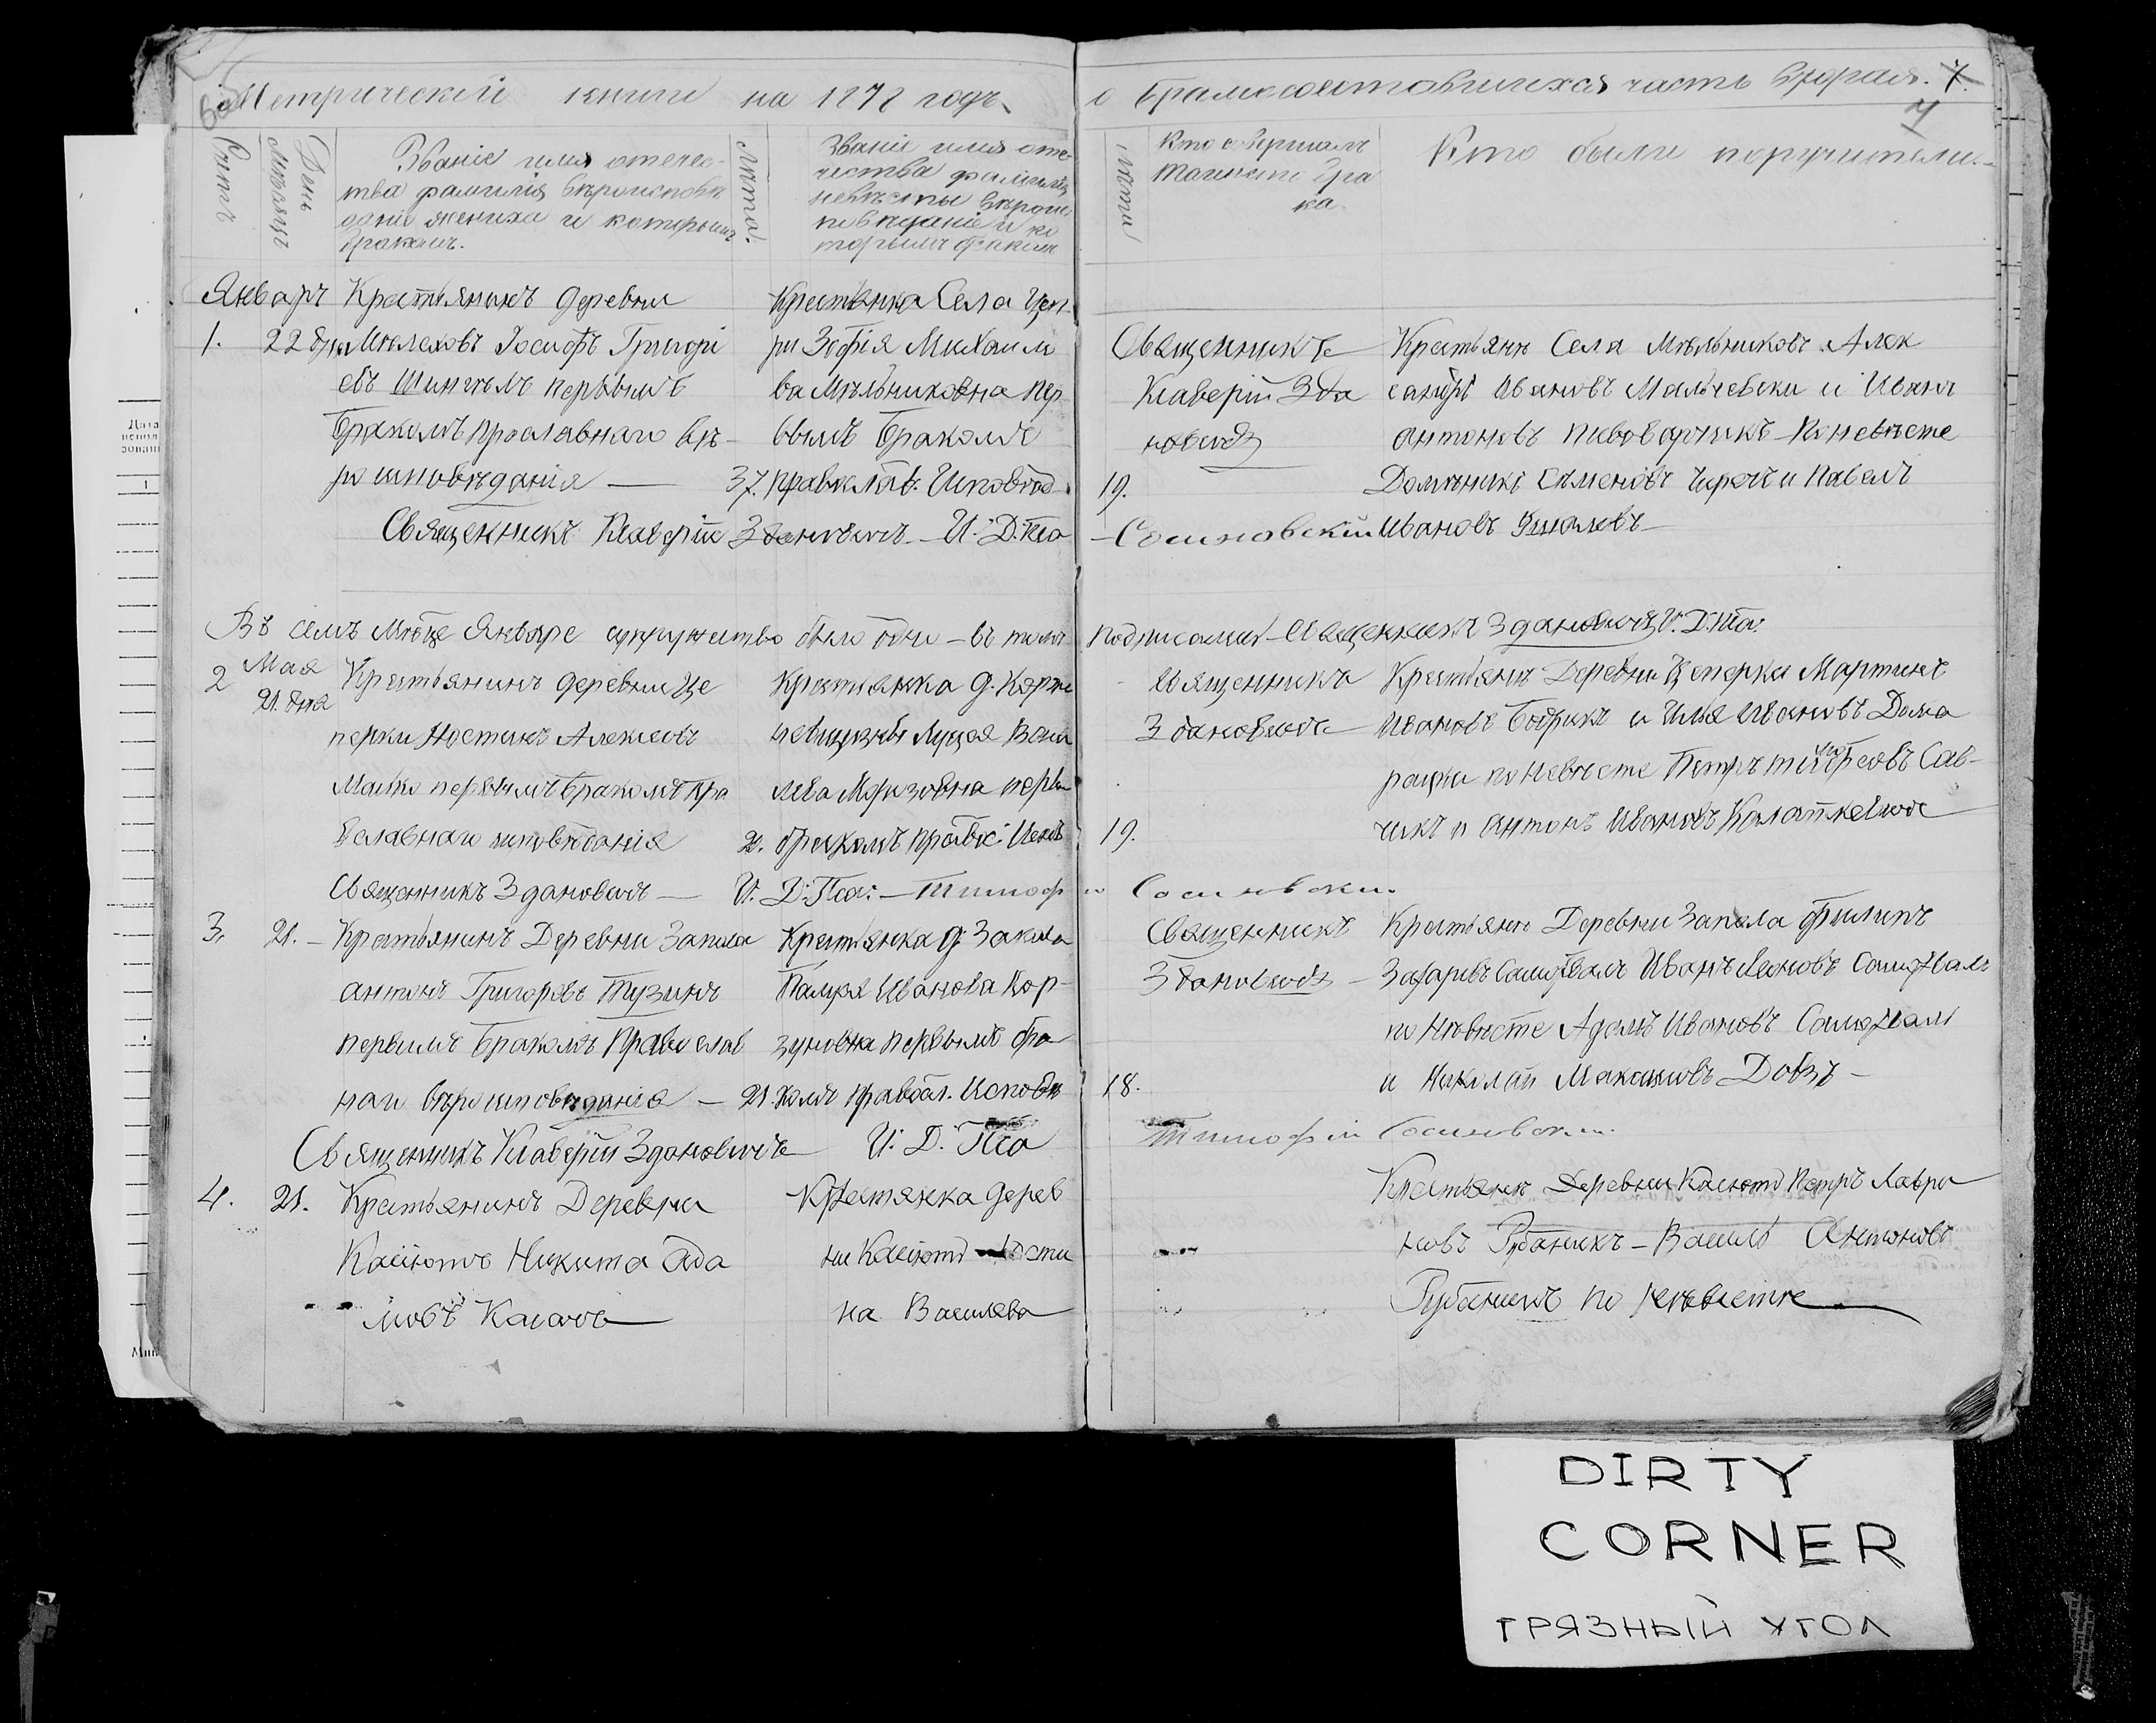 Метрической книги на 1878 годъ
о бракосочетавшихся часть вторая. 7.
4
Счетъ
Мѣсяцъ
День
Званіе имя отечес-
тва фамилія вѣроисповѣ
даніе жениха и которымъ
бракомъ.
Лѣта.
Званіе имя оте-
чества фамилія
невѣсты вѣроис
повѣданіе и ко
торымъ бракомъ
Лѣта
Кто совершалъ
таинство бра
ка.
Кто были поручители.
Январь Крестьянинъ деревни
1. 22 дня Іосифъ Григорі
евъ первымъ
бракомъ Православнаго вѣ-
ро исповѣданія — 37.
Крестьянка Села Цеп-
ри Зофія Михаило
ва Мѣльниковна пер
вымъ бракомъ
правосла. Исповѣд.
19.
Священникъ
Ксаверій Зда
новичъ
Крестьяне Села Мѣльниковъ Алек
сандръ Ивановъ Мальчевски и Иванъ
Антоновъ Пивоварчикъ — По невѣсте
Семеновъ и Павелъ
Ивановъ
Священникъ Ксаверій Здановичъ — И. Д. Пса
— Сосиновскій
Въ семъ Мѣсяце Январе супружество было одно — въ томъ
подписались — Священникъ Здановичъ И. Д. Пса:
2 Мая
21. дня
Крестьянинъ деревни Це
перки Алексеевъ
Малко первымъ бракомъ Пра
вославнаго исповѣданія
Крестьянка д.
Луция Васи
лева первы
20. бракомъ правос: Испов
19.
Священникъ
Здановичъ
Крестьяне Деревни Цеперки Мартинъ
Ивановъ и Илья Ивановъ Дома
рацки по Невѣсте Петръ Сав-
чикъ и Антонъ Ивановъ
Священникъ Здановичъ — И. Д. Пса: — Тимофей Сосиновски
3. 21. — Крестьянинъ Деревни Запола
Антонъ Григоревъ Тузикъ
первымъ бракомъ Православ
наго вѣроисповѣданія — 21.
Крестьянка д. Закола
Иванова Кор-
зуновна первымъ бра
комъ правосл. Исповѣ
18.
Священникъ
Здановичъ —
Крестьяне Деревни Запола Филипъ
Захаревъ Самоткалъ Иванъ Леоновъ Самоткалъ
по Невѣсте Адамъ Ивановъ Самоткалъ
и Николай Максимовъ —
Священникъ Ксаверій Здановичъ И. Д. Пса
Тимофей Сосиновски
4. 21. Крестьянинъ Деревни
Касіюты Никита Ада
мовъ
Крестянка дерев
ни Касіюты Юсти
на Василева
Крестьяне Деревни Касюты Петръ Лавре
новъ Рубаникъ — Василь Антоновъ
Рубаникъ по невѣстѣ
DIRTY
CORNER
ГРЯЗНЫЙ УГОЛ